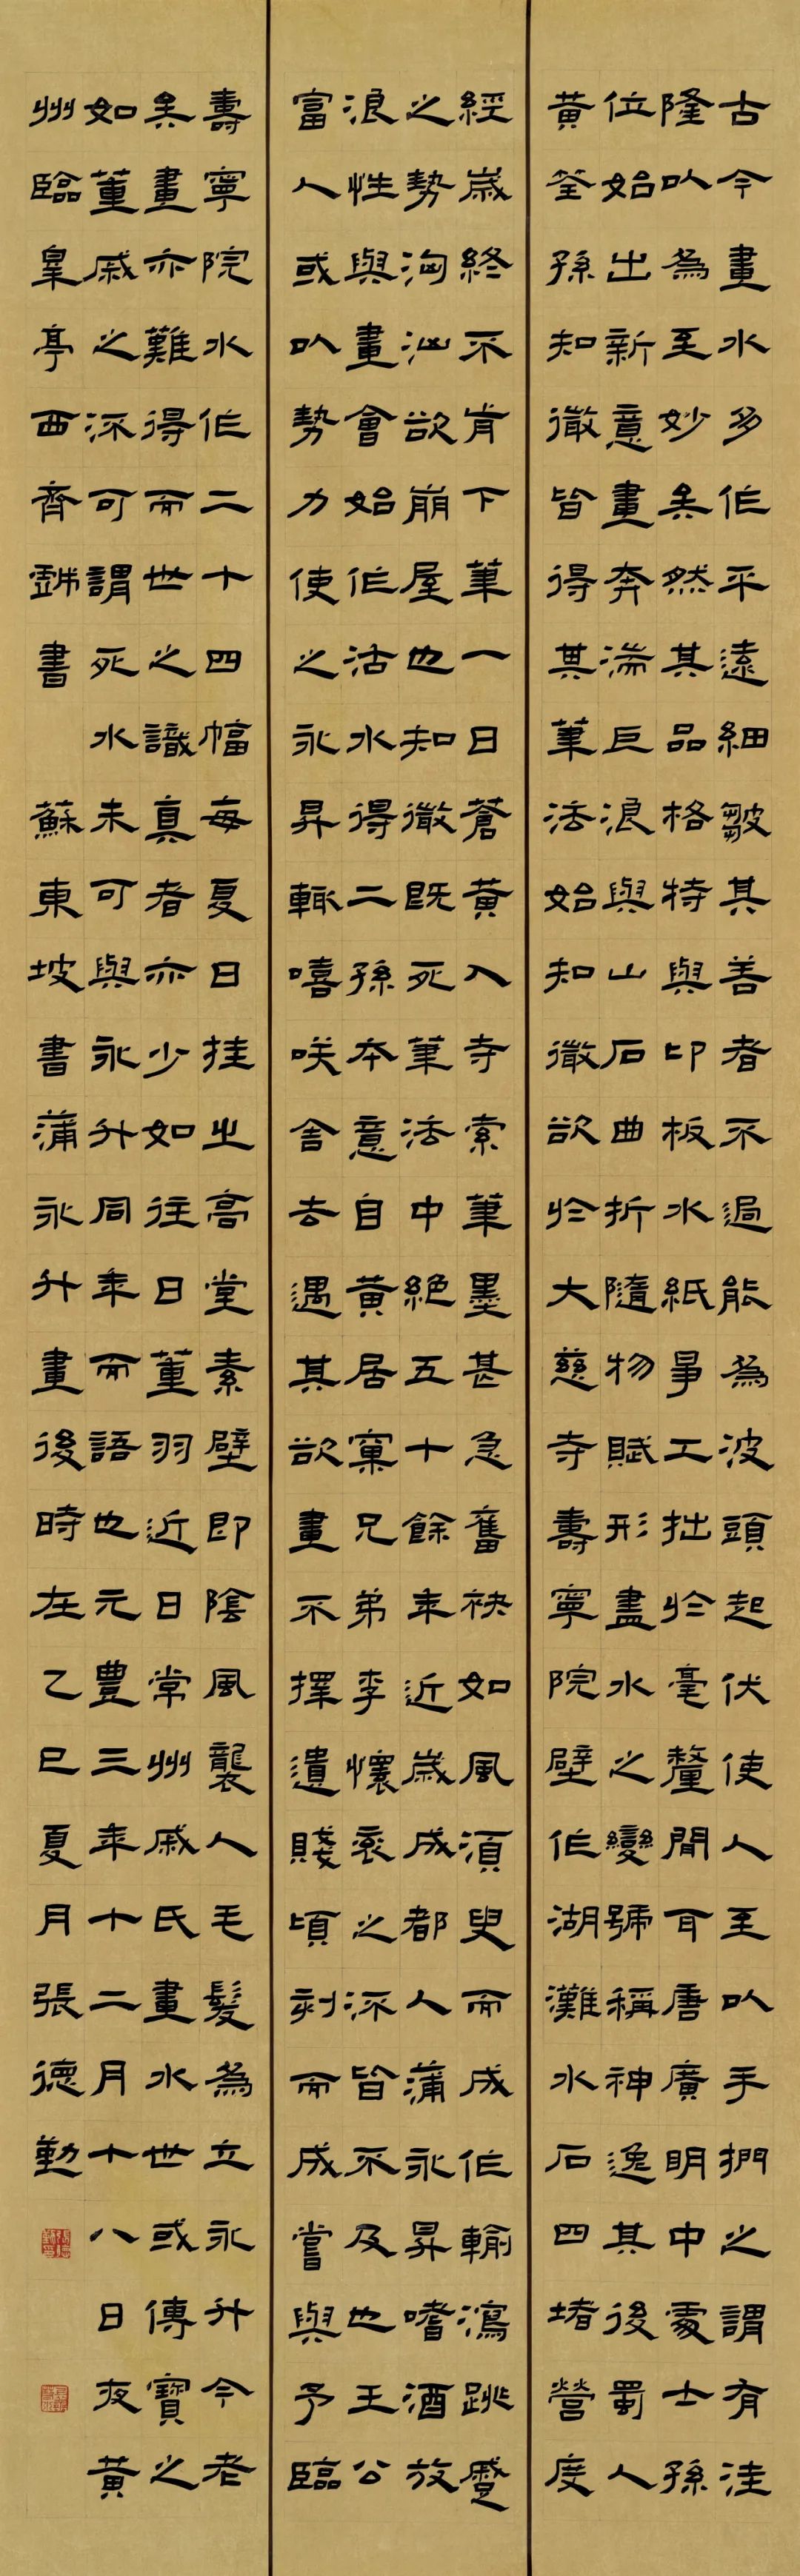 古今畫水多作平遠細皺其善者不過能為波頭起伏使人至以手捫之謂有洼
隆以為至妙矣然其品格特與印板水紙爭工拙於毫釐間耳唐廣明中處士孫
位始出新意畫奔湍巨浪與山石曲折隨物賦形盡水之變號稱神逸其後蜀人
黃筌孫知微皆得其筆法始知微欲於大慈寺壽寧院壁作湖灘水石四堵營度
經歲終不肯下筆一日蒼黃入寺索筆墨甚急奮袂如風須臾而成作輸瀉跳蹙
之勢洶汹欲崩屋也知微既死筆法中絕五十餘年近歲成都人蒲永昇嗜酒放
浪性與畫會始作活水得二孫本意自黃居窠兄弟李懷袞之流皆不及也王公
富人或以勢力使之永昇輒嘻咲舍去遇其欲畫不擇遺賤頃刻而成嘗與予臨
壽寧院水作二十四幅每夏日挂之高堂素壁即陰風襲人毛髮為立永升今老
矣畫亦難得而世之識真者亦少如往日董羽近日常州戚氏畫水世或傳寶之
如董戚之流可謂死水未可與永升同年而語也元豐三年十二月十八日夜黃
州臨皋亭西齊戲書 蘇東坡書蒲永升畫後時在乙巳夏月張德勤